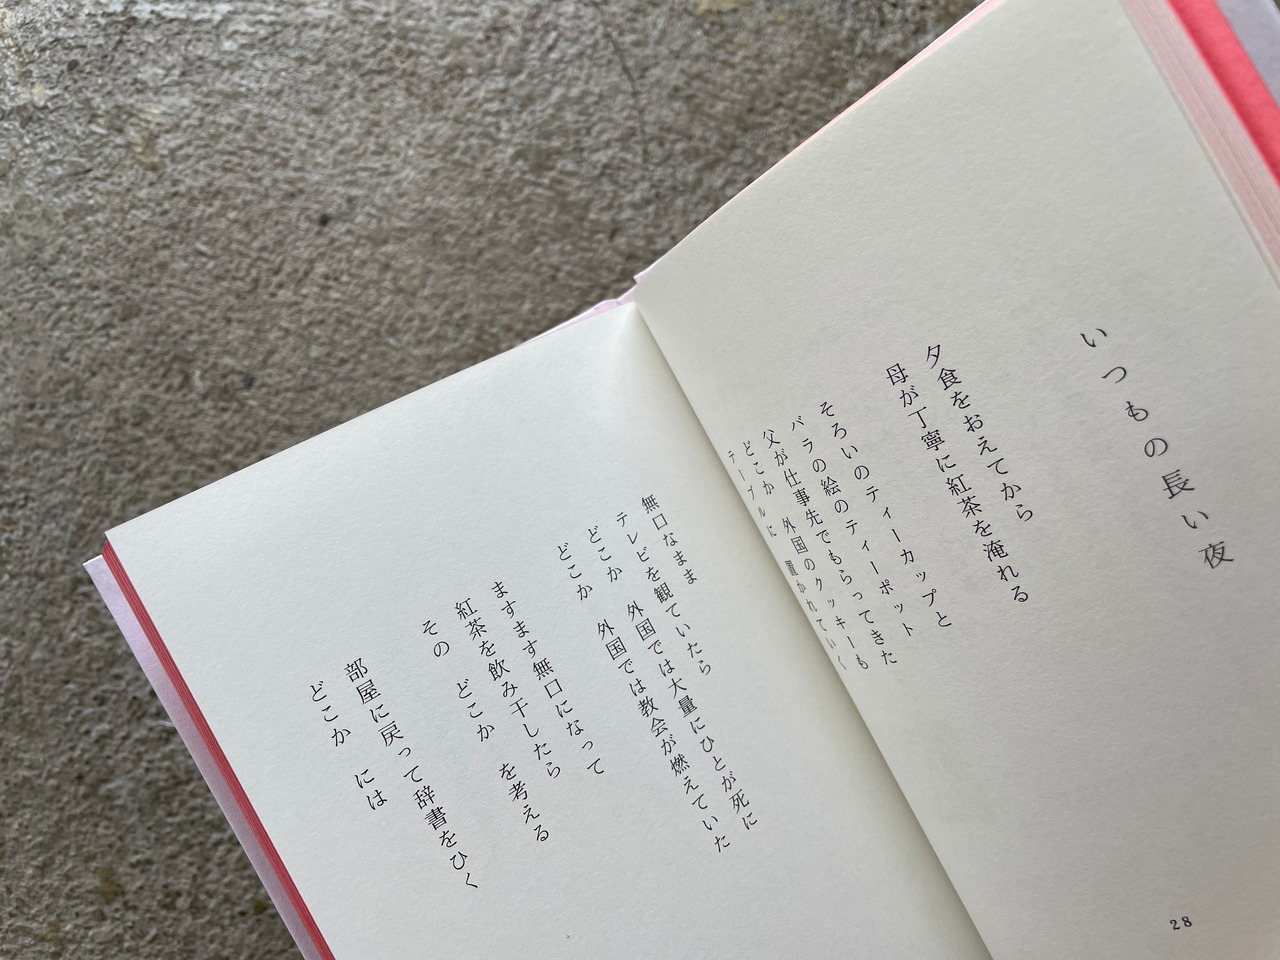 いつもの長い夜
夕食をおえてから
母が丁寧に紅茶を淹れる
そろいのティーカップと
バラの絵のティーポット
父が仕事先でもらってきた
どこか　外国のクッキーも
テーブルに　置かれていく
無口なまま
テレビを観ていたら
どこか　外国では大量にひとが死に
どこか　外国では教会が燃えていた
ますます無口になって
紅茶を飲み干したら
その　どこか　を考える
部屋に戻って辞書をひく
どこか　には
28